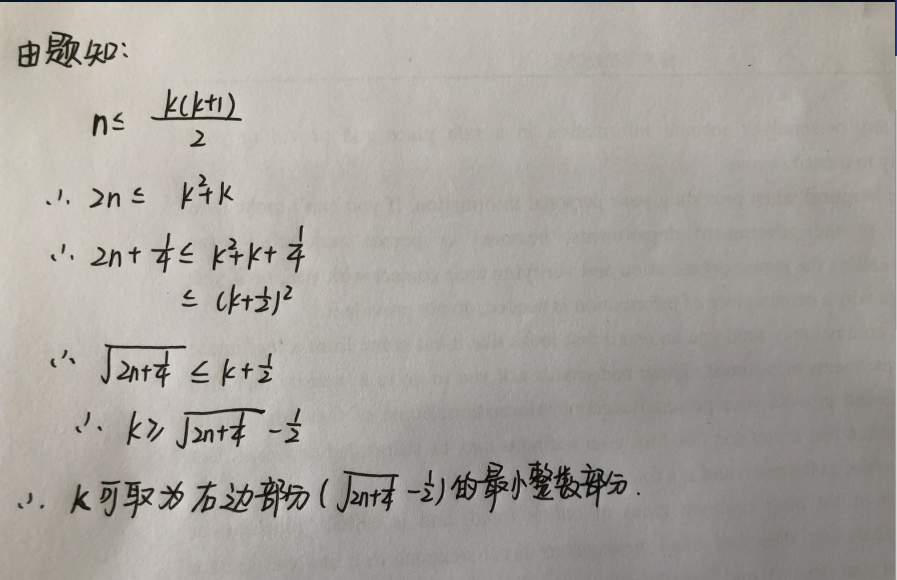 由题知:
n≤ k(k+1)/2
∴ 2n ≤ k²+k
∴ 2n + 1/4 ≤ k²+k+ 1/4
≤ (k+1/2)²
∴ √(2n+1/4) ≤ k+1/2
∴ k≥ √(2n+1/4) - 1/2
∴ k可取为右边部分(√(2n+1/4) - 1/2)的最小整数部分.